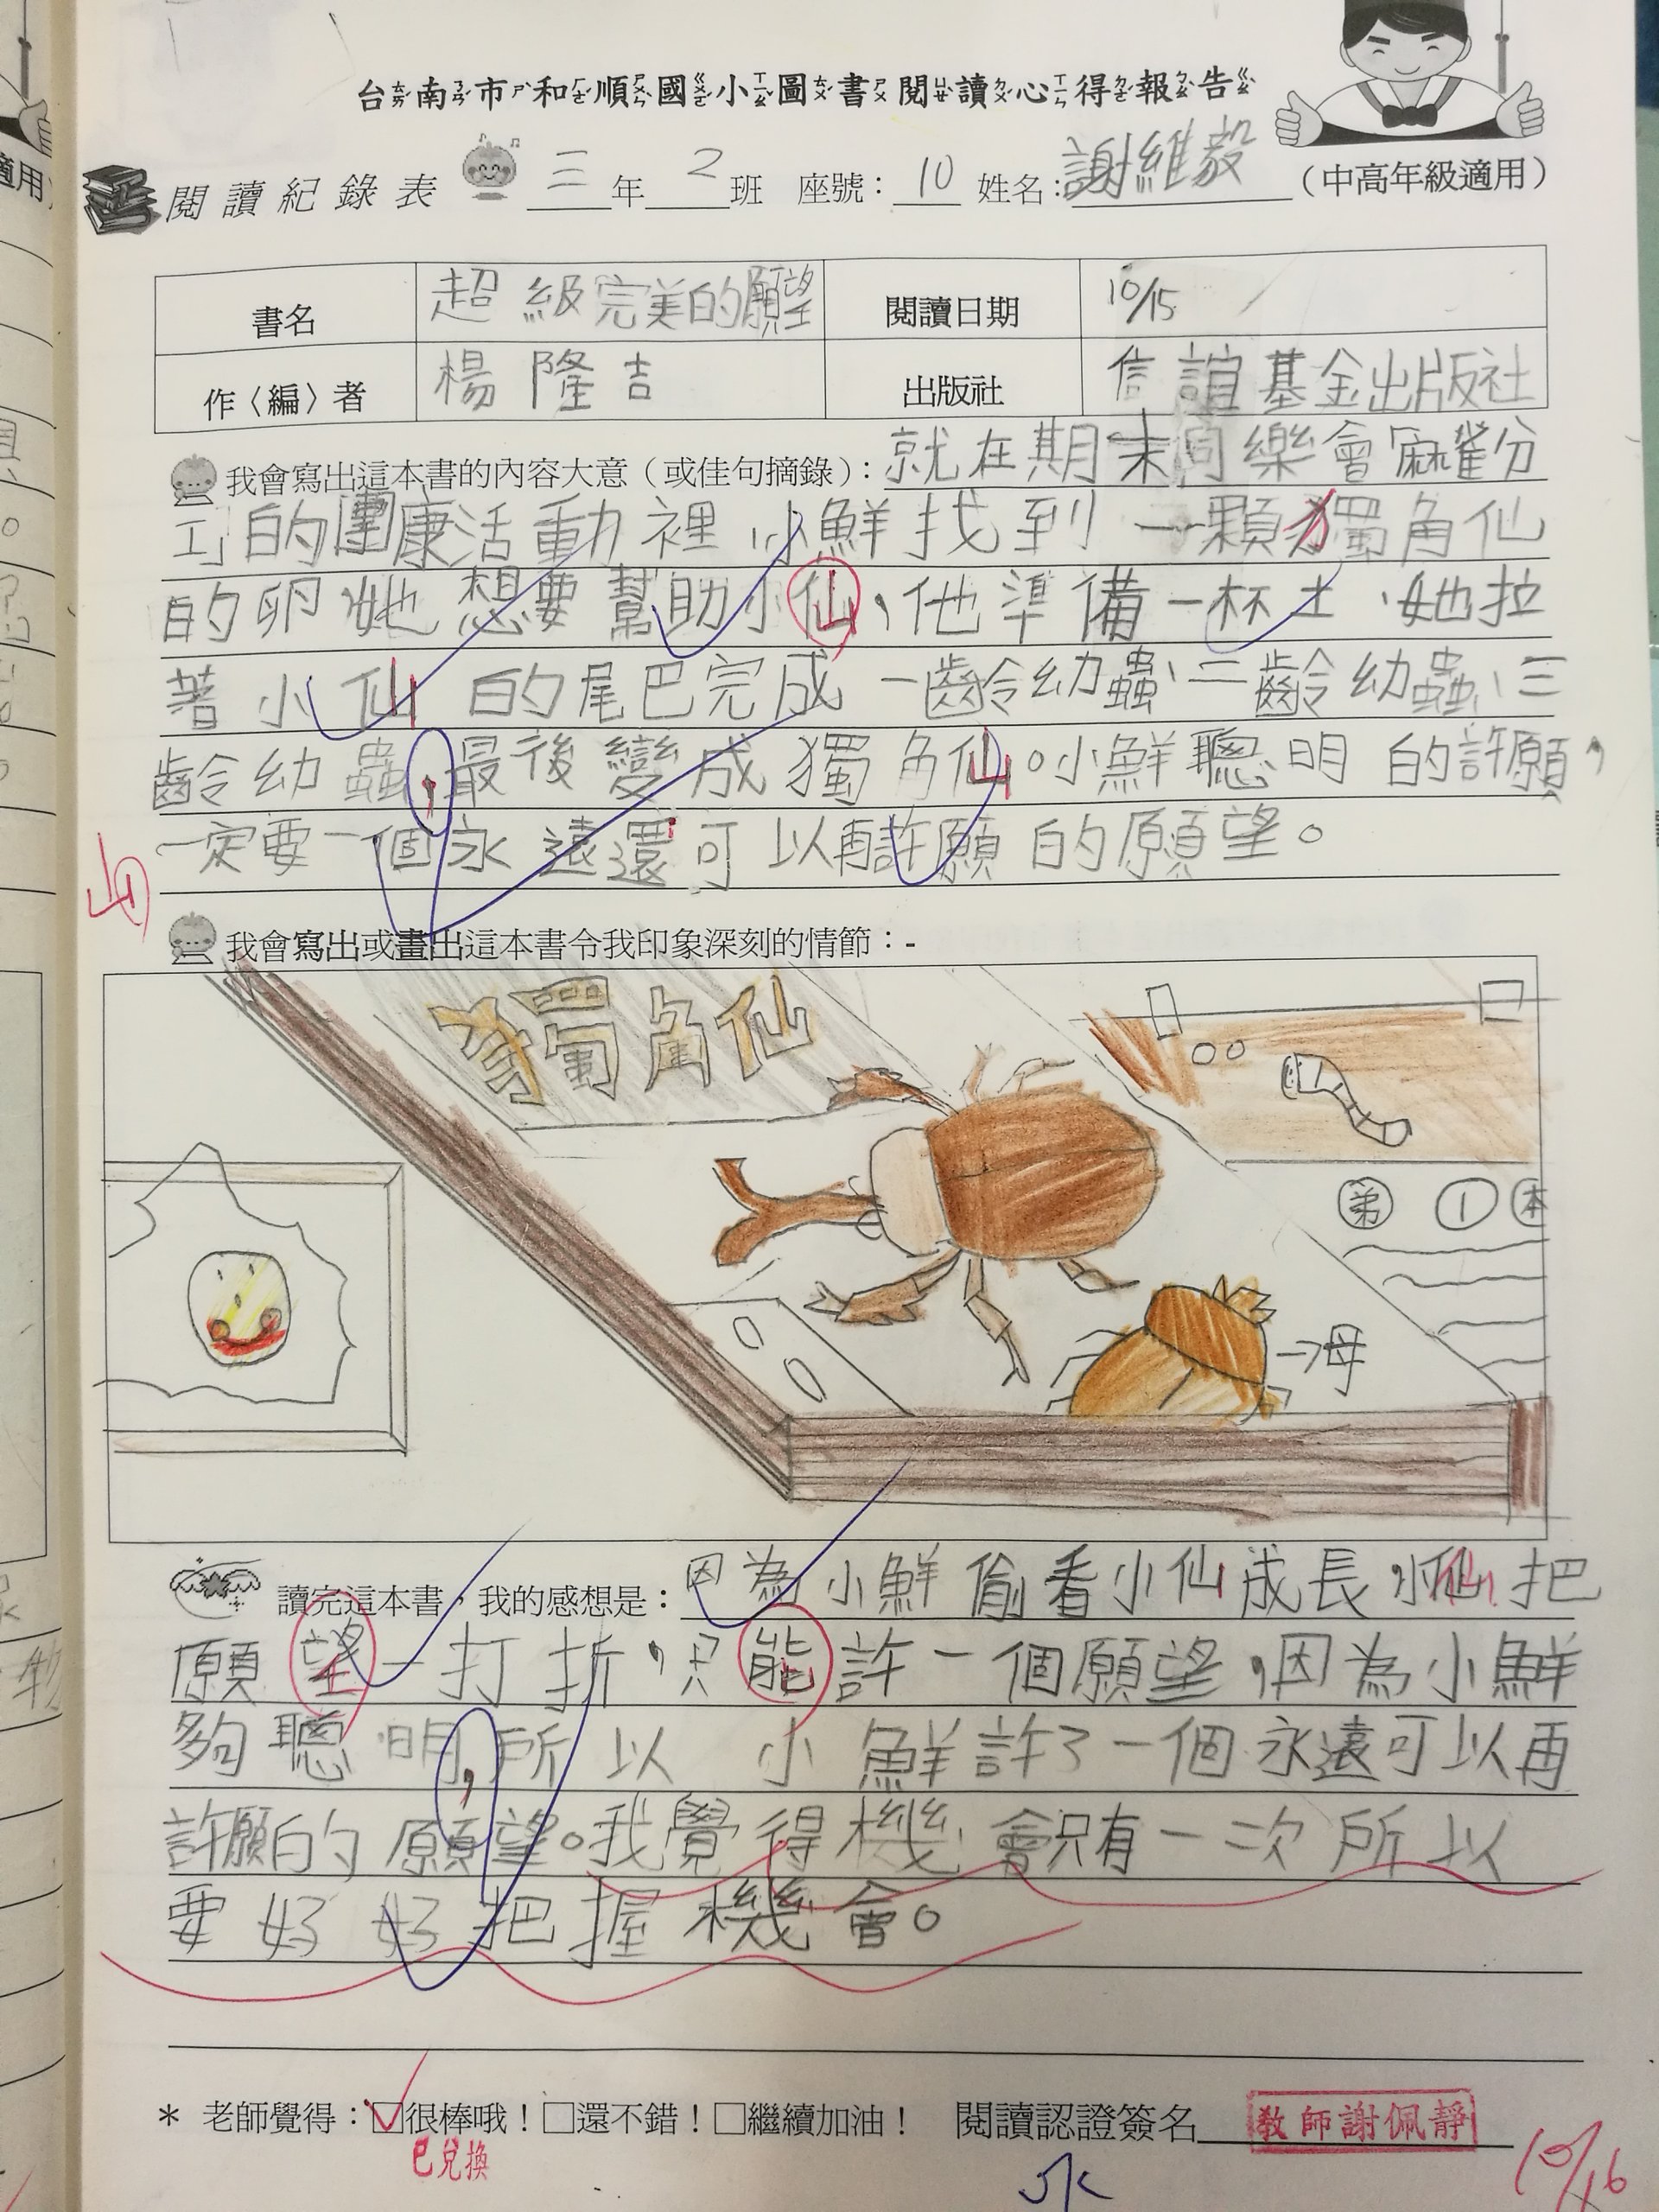 台南市和順國小圖書閱讀心得報告
閱讀紀錄表 三年2班 座號：10 姓名：謝維毅 （中高年級適用）
書名 超級完美的願望 閱讀日期 10/15
作〈編〉者 楊隆吉 出版社 信誼基金出版社
我會寫出這本書的內容大意（或佳句摘錄）：就在期末同樂會麻雀分
工的團康活動裡，小鮮找到一顆獨角仙
的卵，她想要幫助小仙，他準備一杯土，她拉
著小仙的尾巴完成一齡幼蟲、二齡幼蟲、三
齡幼蟲，最後變成獨角仙。小鮮聰明的許願，
一定要一個永遠還可以再許願的願望。
我會寫出或畫出這本書令我印象深刻的情節：-
獨角仙
弟 1 本
→母
讀完這本書，我的感想是：因為小鮮偷看小仙成長，小仙把
願望一打折，只能許一個願望，因為小鮮
夠聰明，所以小鮮許了一個永遠可以再
許願的願望。我覺得機會只有一次所以
要好好把握機會。
* 老師覺得：☑很棒哦！□還不錯！□繼續加油！ 閱讀認證簽名 教師謝佩靜
已兌換
10/16